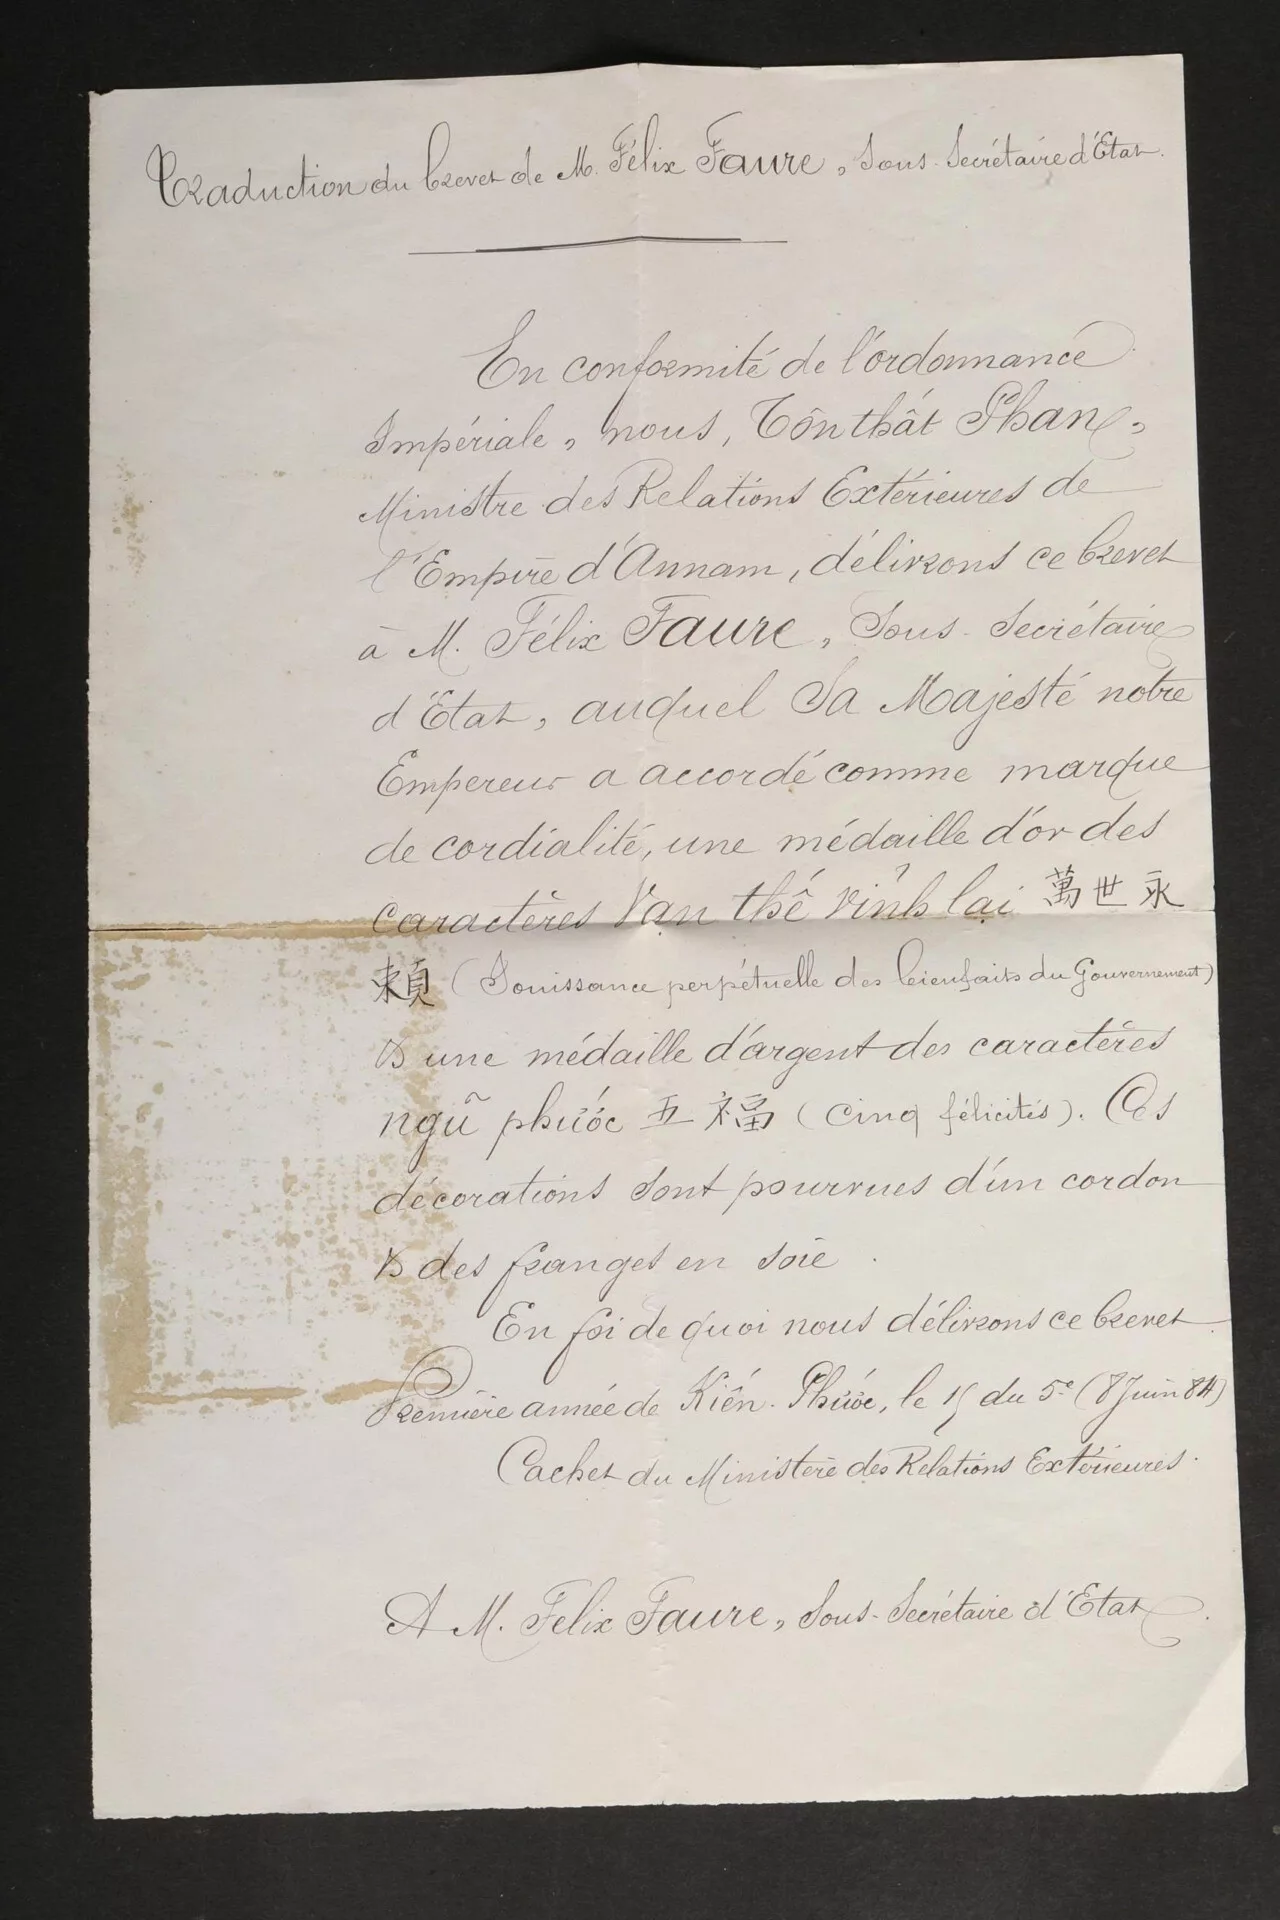 Traduction du brevet de M. Félix Faure, Sous-Secrétaire d'État.
En conformité de l'ordonnance
Impériale, nous, Tôn thât Phan,
Ministre des Relations Extérieures de
l'Empire d'Annam, délivrons ce brevet
à M. Félix Faure, Sous-Secrétaire
d'État, auquel Sa Majesté notre
Empereur a accordé comme marque
de cordialité, une médaille d'or des
caractères Vạn thế vĩnh lại 萬世永
賴 (Jouissance perpétuelle des bienfaits du Gouvernement)
& une médaille d'argent des caractères
ngũ phước 五福 (Cinq félicités). Ces
décorations sont pourvues d'un cordon
& des franges en soie.
En foi de quoi nous délivrons ce brevet
Première année de Kiên-Phước, le 15 du 5e (8 Juin 84)
Cachet du Ministère des Relations Extérieures.
A M. Félix Faure, Sous-Secrétaire d'État.